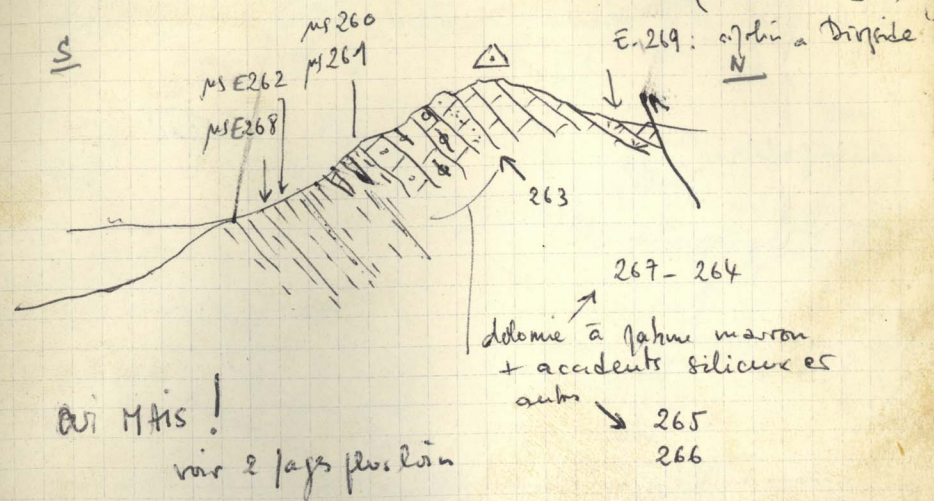 S
µs 260
µs 261
µs E262
µsE268
E.269:
N
263
267 - 264
dolomie à patine marron
+ accidents siliceux et
autres
265
266
OUI MAIS !
voir 2 pages plus loin